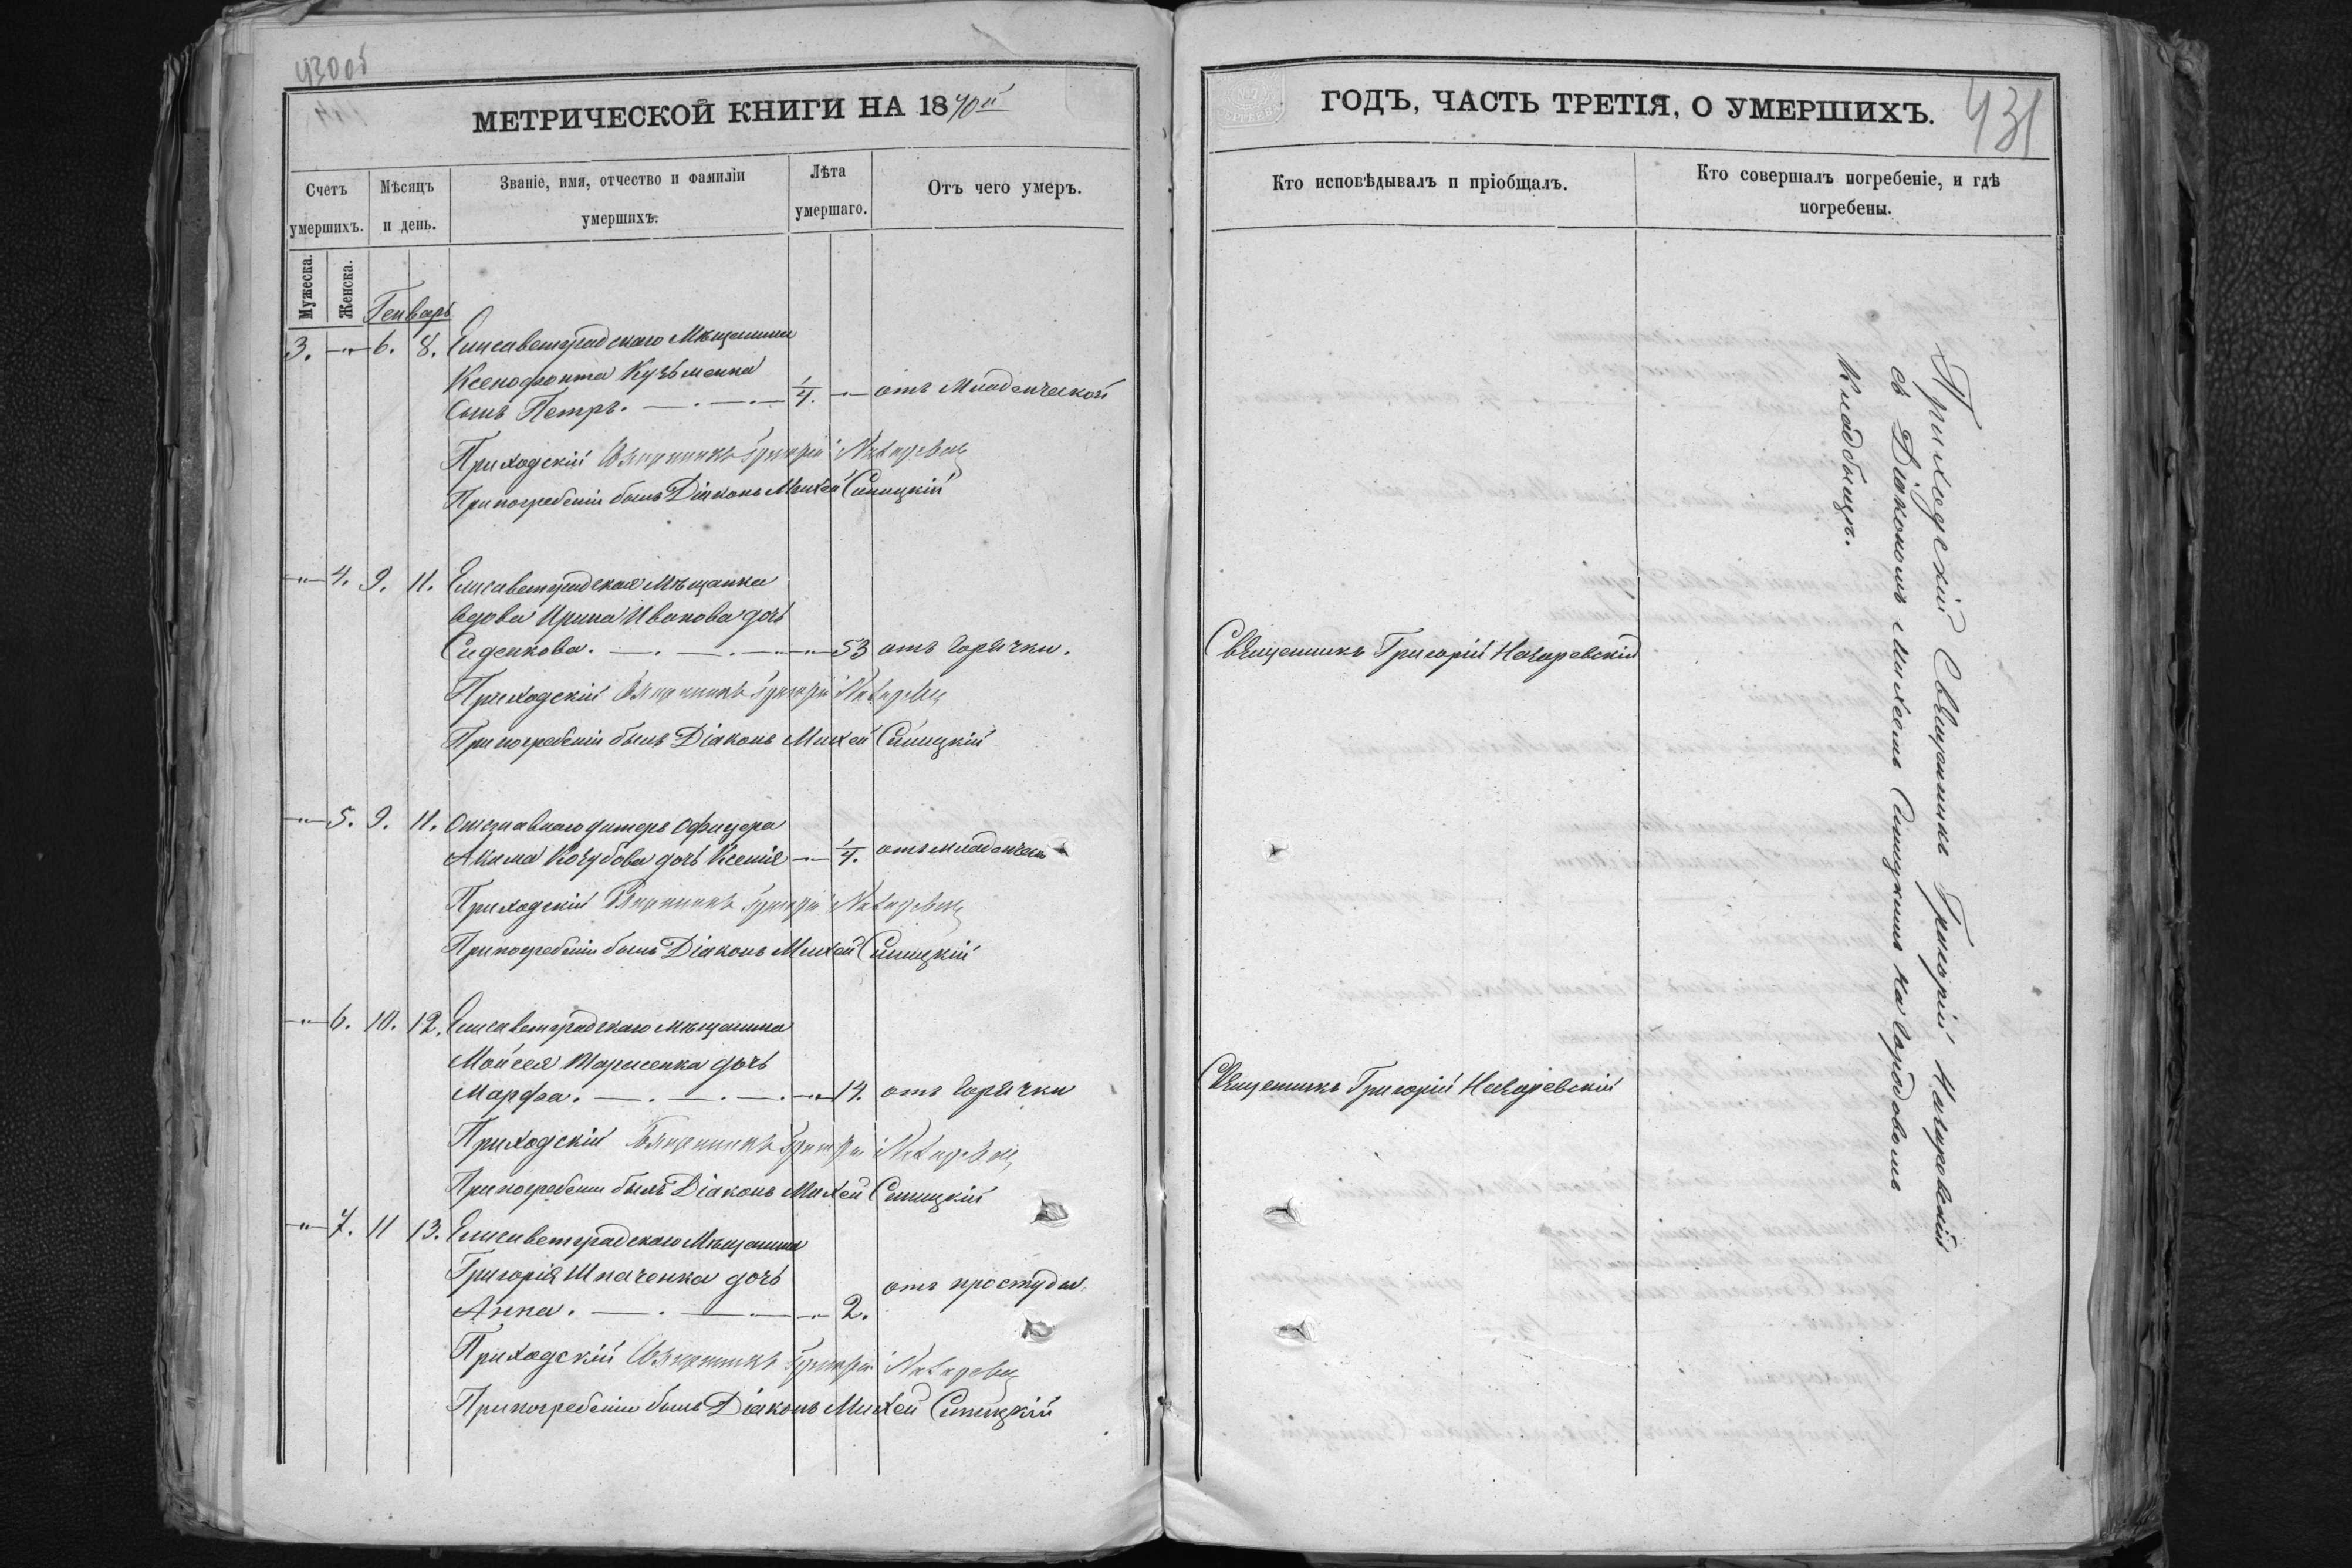 430об
МЕТРИЧЕСКОЙ КНИГИ НА 1870й
Счетъ умершихъ.
Мѣсяцъ и день.
Званіе, имя, отчество и фамиліи умершихъ.
Лѣта умершаго.
Отъ чего умеръ.
Мужеска.
Женска.
Генварь
3. —"— 6. 8. Елисаветградскаго Мѣщанина
Ксенофонта Кузьменка
Сынъ Петръ. — 1/4. — отъ Младенческой
Приходскій Священникъ Григорій Назаревскій
При погребеніи былъ Діаконъ Михей Синицкій
—"— 4. 9. 11. Елисаветградская Мѣщанка
вдова Ирина Иванова дочь
Сиденкова. — 53 отъ горячки.
Приходскій Священникъ Григорій Назаревскій
При погребеніи былъ Діаконъ Михей Синицкій
—"— 5. 9. 11. Отставнаго унтеръ офицера
Акима Кочубова дочь Ксенія —"— 1/4. отъ младенческ
Приходскій Священникъ Григорій Назаревскій
При погребеніи былъ Діаконъ Михей Синицкій
—"— 6. 10. 12. Елисаветградскаго мѣщанина
Мойсея Тарасенка дочь
Марфа. — 14. отъ горячки
Приходскій Священникъ Григорій Назаревскій
При погребеніи былъ Діаконъ Михей Синицкій
—"— 7. 11 13. Елисаветградскаго Мѣщанина
Григорія Шпаченка дочь
Анна. — 2. отъ простуды.
Приходскій Священникъ Григорій Назаревскій
При погребеніи былъ Діаконъ Михей Синицкій
ГОДЪ, ЧАСТЬ ТРЕТІЯ, О УМЕРШИХЪ.
431
Кто исповѣдывалъ и пріобщалъ.
Кто совершалъ погребеніе, и гдѣ погребены.
Священникъ Григорій Назаревскій
Священникъ Григорій Назаревскій
Приходскій Священникъ Григорій Назаревскій
съ Діакономъ Михеемъ Синицкимъ на городовомъ
Кладбищѣ.